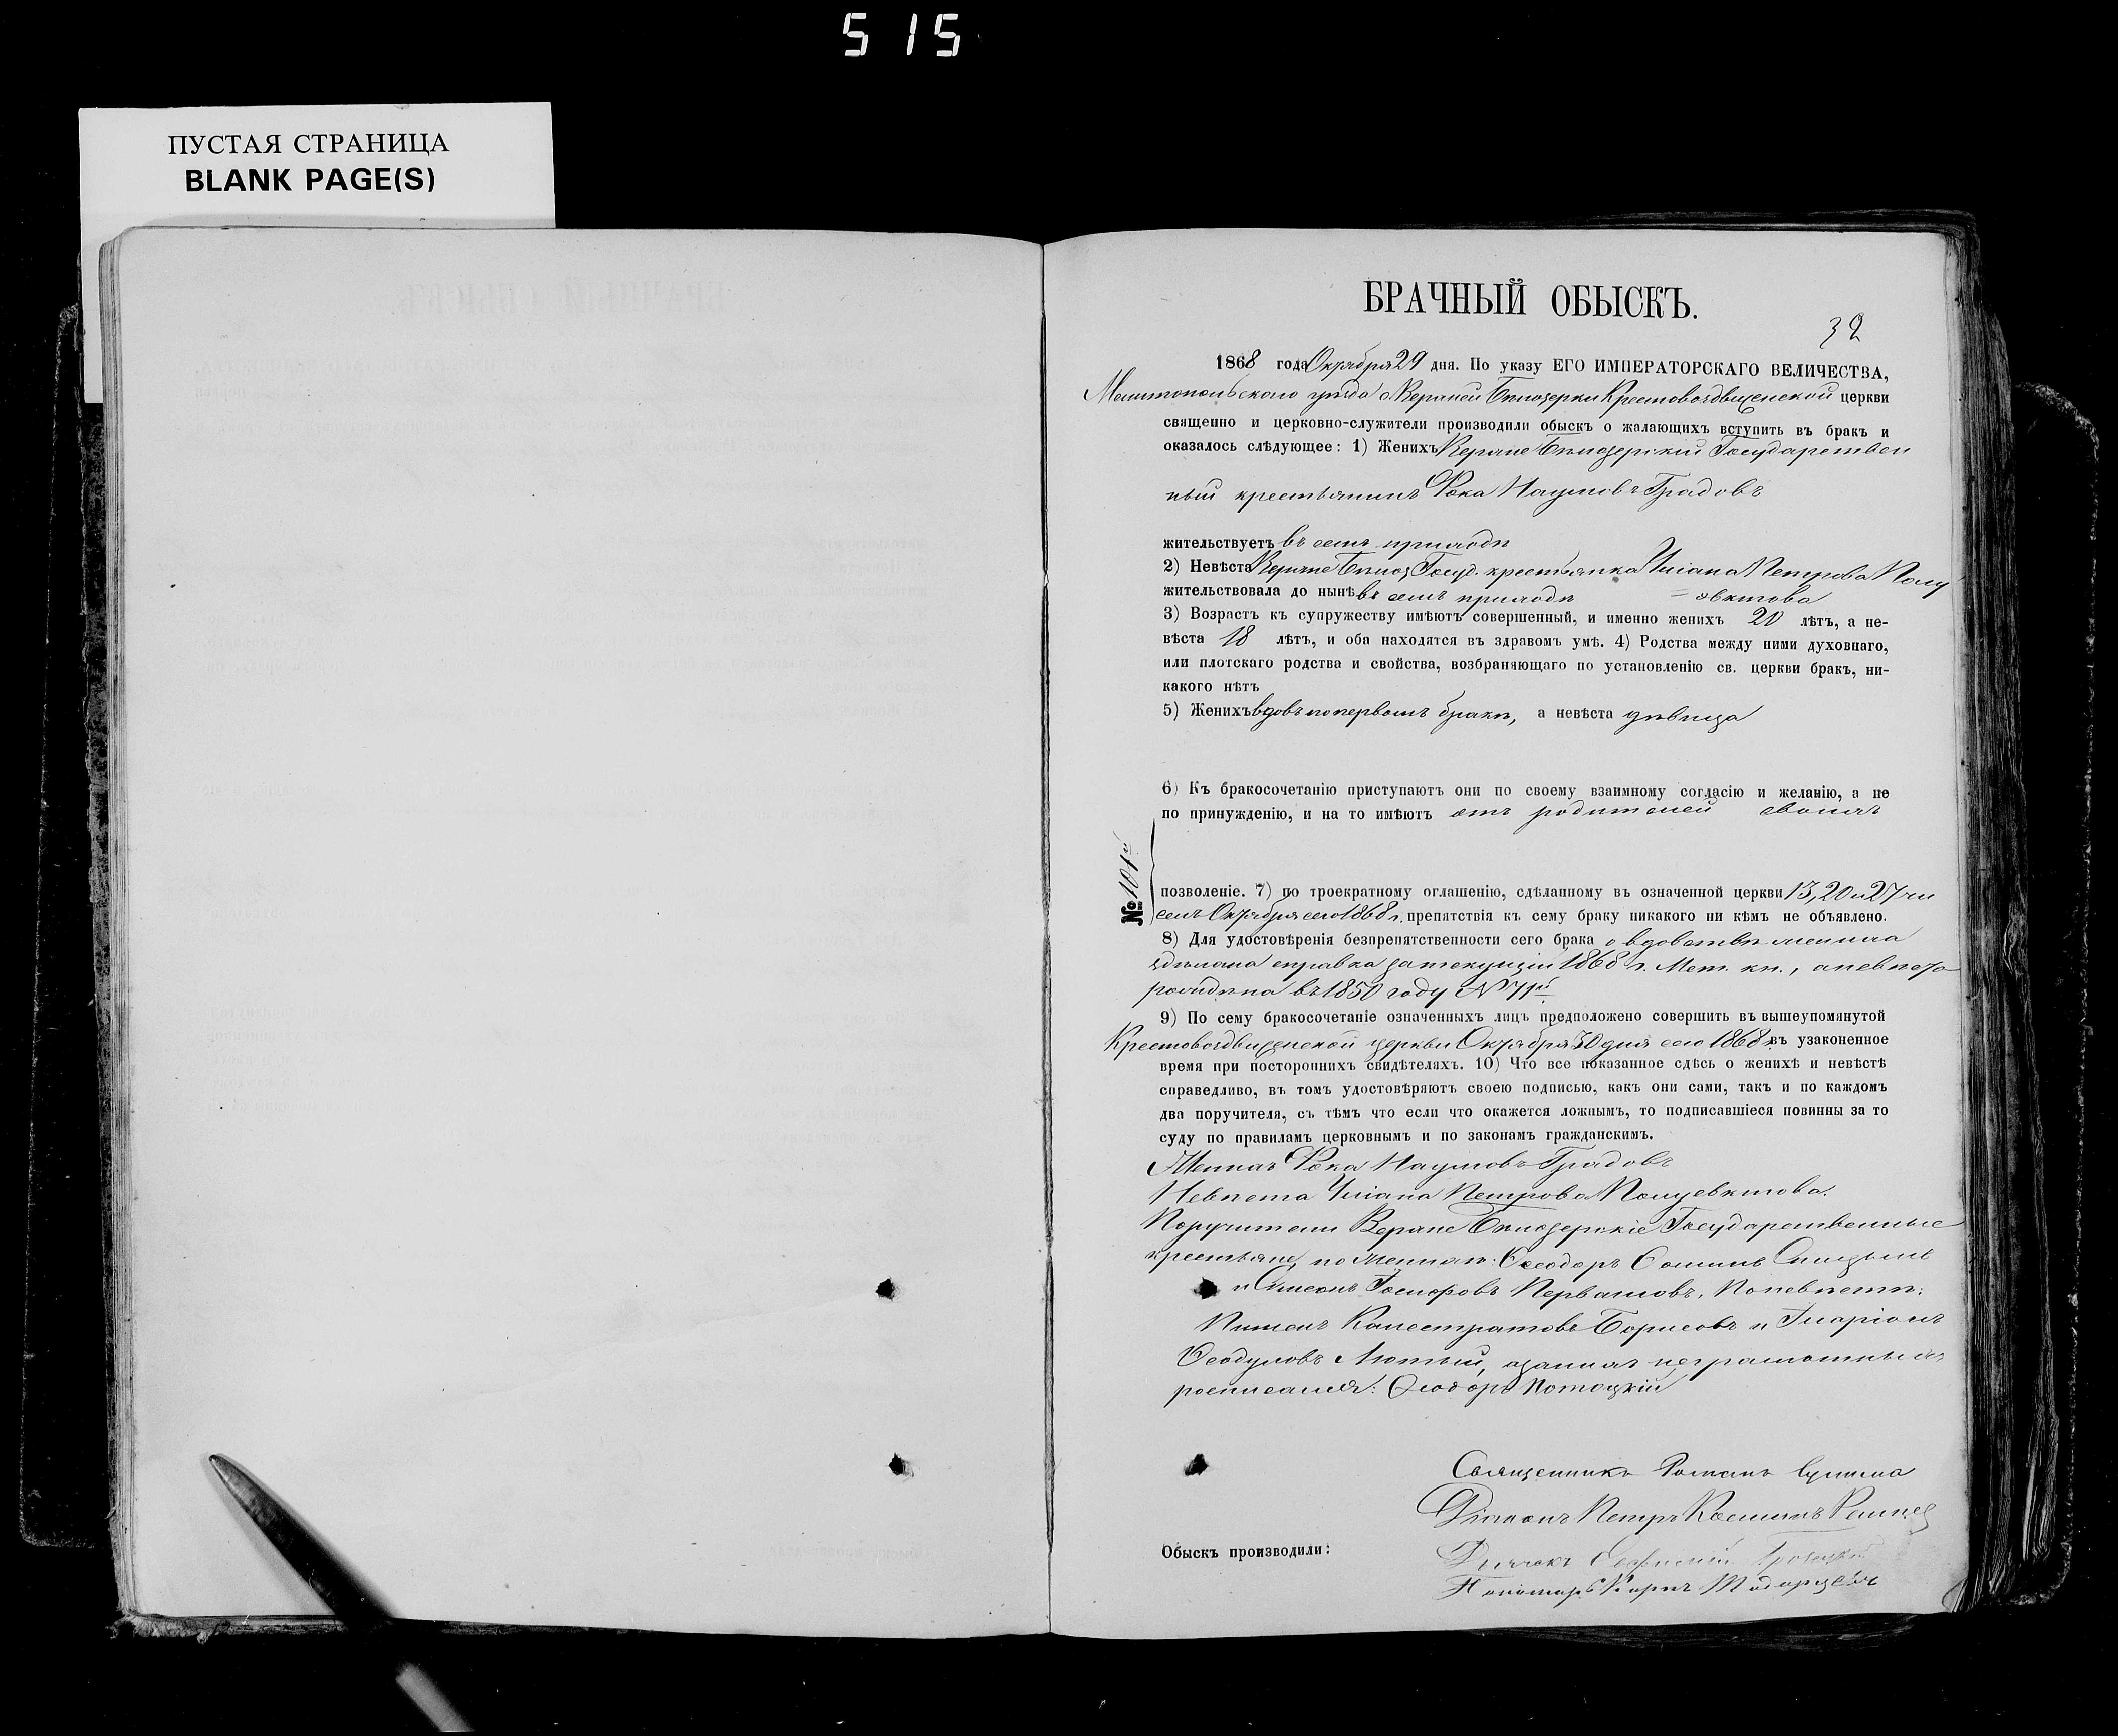 515
ПУСТАЯ СТРАНИЦА
BLANK PAGE(S)
БРАЧНЫЙ ОБЫСКЪ.
32
1868 года Октября 29 дня. По указу ЕГО ИМПЕРАТОРСКАГО ВЕЛИЧЕСТВА,
Мелитопольскаго уѣзда с. Верхней Бѣлозерки Крестовоздвиженской церкви
священно и церковно-служители производили обыскъ о жалающихъ вступить въ бракъ и
оказалось слѣдующее: 1) Женихъ Верхне Бѣлозерскій Государствен
ный крестьянинъ Фока Наумовъ Градовъ
жительствуетъ въ семъ приходѣ
2) Невѣста Верхне Бѣлоз. Госуд. крестьянка Уліана Петрова Полу
жительствовала до нынѣ въ семъ приходѣ = эвктова
3) Возрастъ къ супружеству имѣютъ совершенный, и именно женихъ 20 лѣтъ, а не-
вѣста 18 лѣтъ, и оба находятся въ здравомъ умѣ. 4) Родства между ними духовнаго,
или плотскаго родства и свойства, возбраняющаго по установленію св. церкви бракъ, ни-
какого нѣтъ
5) Женихъ вдовъ по первомъ бракѣ, а невѣста дѣвица
6) Къ бракосочетанію приступаютъ они по своему взаимному согласію и желанію, а не
по принужденію, и на то имѣютъ отъ родителей своихъ
№ 101й
позволеніе. 7) по троекратному оглашенію, сдѣланному въ означенной церкви 13, 20 и 27 чи
селъ Октября сего 1868 г. препятствія къ сему браку никакого ни кѣмъ не объявлено.
8) Для удостовѣренія безпрепятственности сего брака о вдовствѣ жениха
сдѣлана справка за текущій 1868 г. Мет. кн., а невѣста
рождена въ 1850 году № 71й
9) По сему бракосочетаніе означенныхъ лицъ предположено совершить въ вышеупомянутой
Крестовоздвиженской церкви Октября 30 дня сего 1868 г. въ узаконенное
время при постороннихъ свидѣтеляхъ. 10) Что все показанное сдѣсь о женихѣ и невѣстѣ
справедливо, въ томъ удостовѣряютъ своею подписью, какъ они сами, такъ и по каждомъ
два поручителя, съ тѣмъ что если что окажется ложнымъ, то подписавшіеся повинны за то
суду по правиламъ церковнымъ и по законамъ гражданскимъ.
Женихъ Фока Наумовъ Градовъ
Невѣста Уліана Петрова Полуевктова.
Поручители Верхне Бѣлозерскіе Государственные
крестьяне, по женихѣ: Ѳеодоръ
и Симеонъ Іосифовъ Перваковъ, По невѣстѣ:
Пименъ Калестратовъ Борисовъ и Иларіонъ
Ѳеодуловъ Лютый, а за нихъ неграмотныхъ
росписался: Ѳеодоръ Потоцкій
Священникъ Романъ
Діаконъ Петръ Космичъ
Обыскъ производили:
Дьячокъ
Пономарь Карпъ